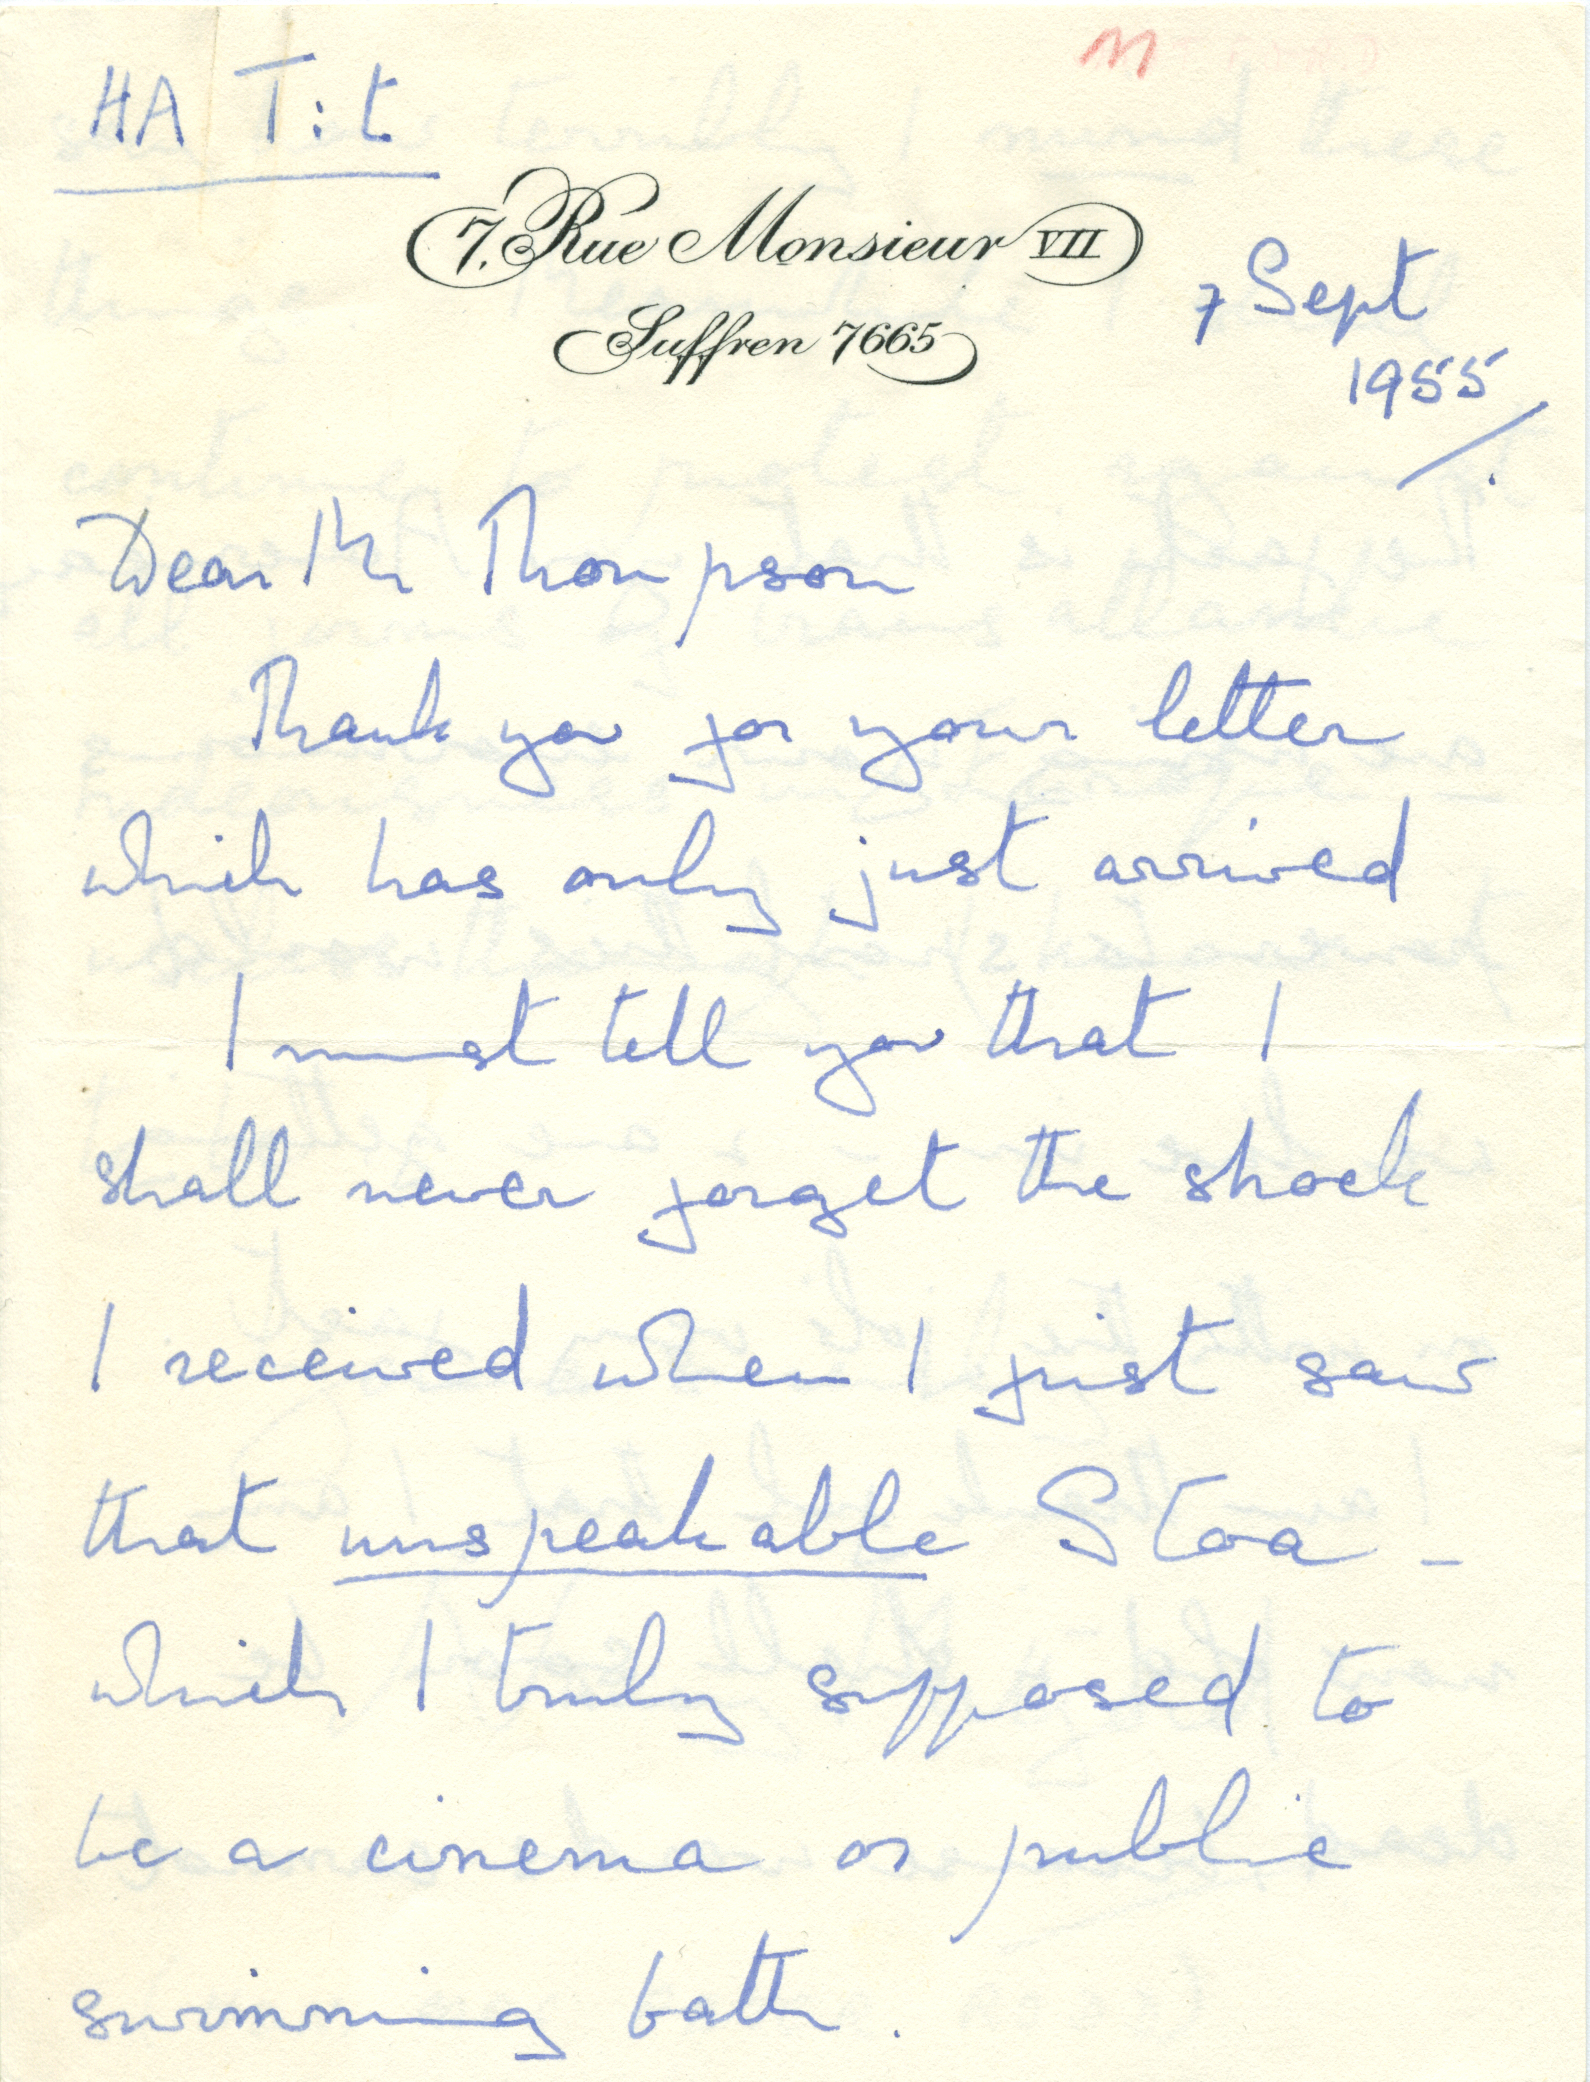 M
HA T:t.
7, Rue Monsieur VII
Suffren 7665
7 Sept
1955
Dear Mr Thompson
Thank you for your letter
which has only just arrived
I must tell you that I
shall never forget the shock
I received when I first saw
that unspeakable Stoa -
which I truly supposed to
be a cinema or public
swimming bath.